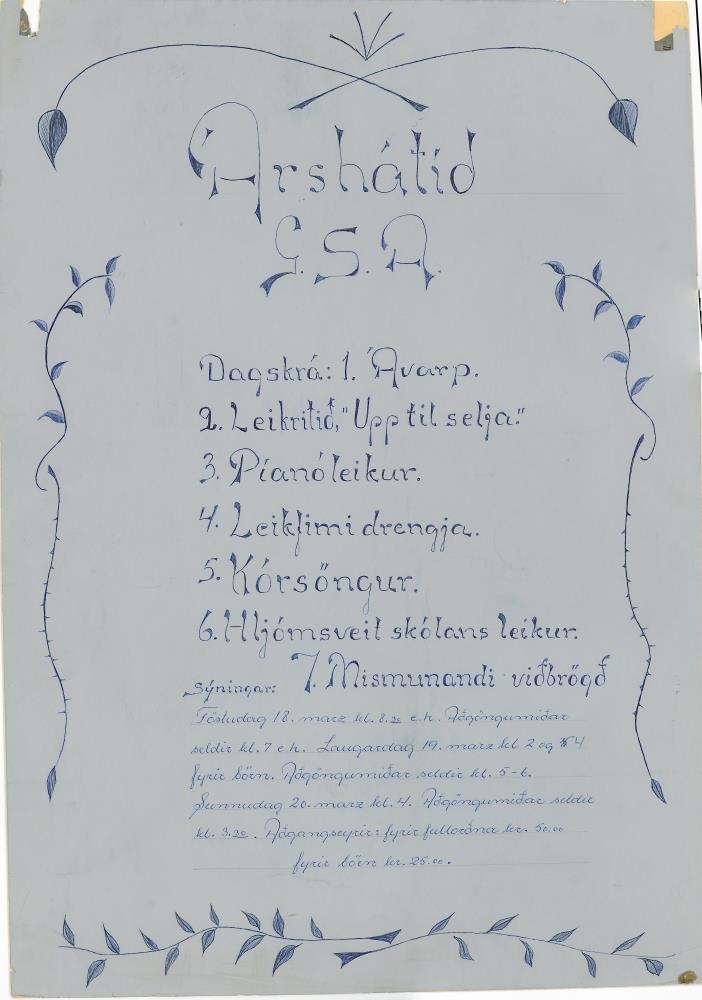 Árshátíd
G.S.A.
Dagskrá: 1. Ávarp.
2. Leikritið, "Upp til selja."
3. Píanóleikur.
4. Leikfimi drengja.
5. Kórsöngur.
6. Hljómsveit skólans leikur.
7. Mismunandi viðbrögð
Sýningar:
Föstudag 18. marz kl. 8.30 e.h. Aðgöngumiðar
seldir kl. 7 e h. Laugardag 19. marz kl 2 og 4
fyrir börn. Aðgöngumiðar seldir kl. 5-6.
Sunnudag 20. marz kl. 4. Aðgöngumiðar seldir
kl. 3.30. Aðgangseyrir: fyrir fullorðna kr. 50.00
fyrir börn kr. 25.00.